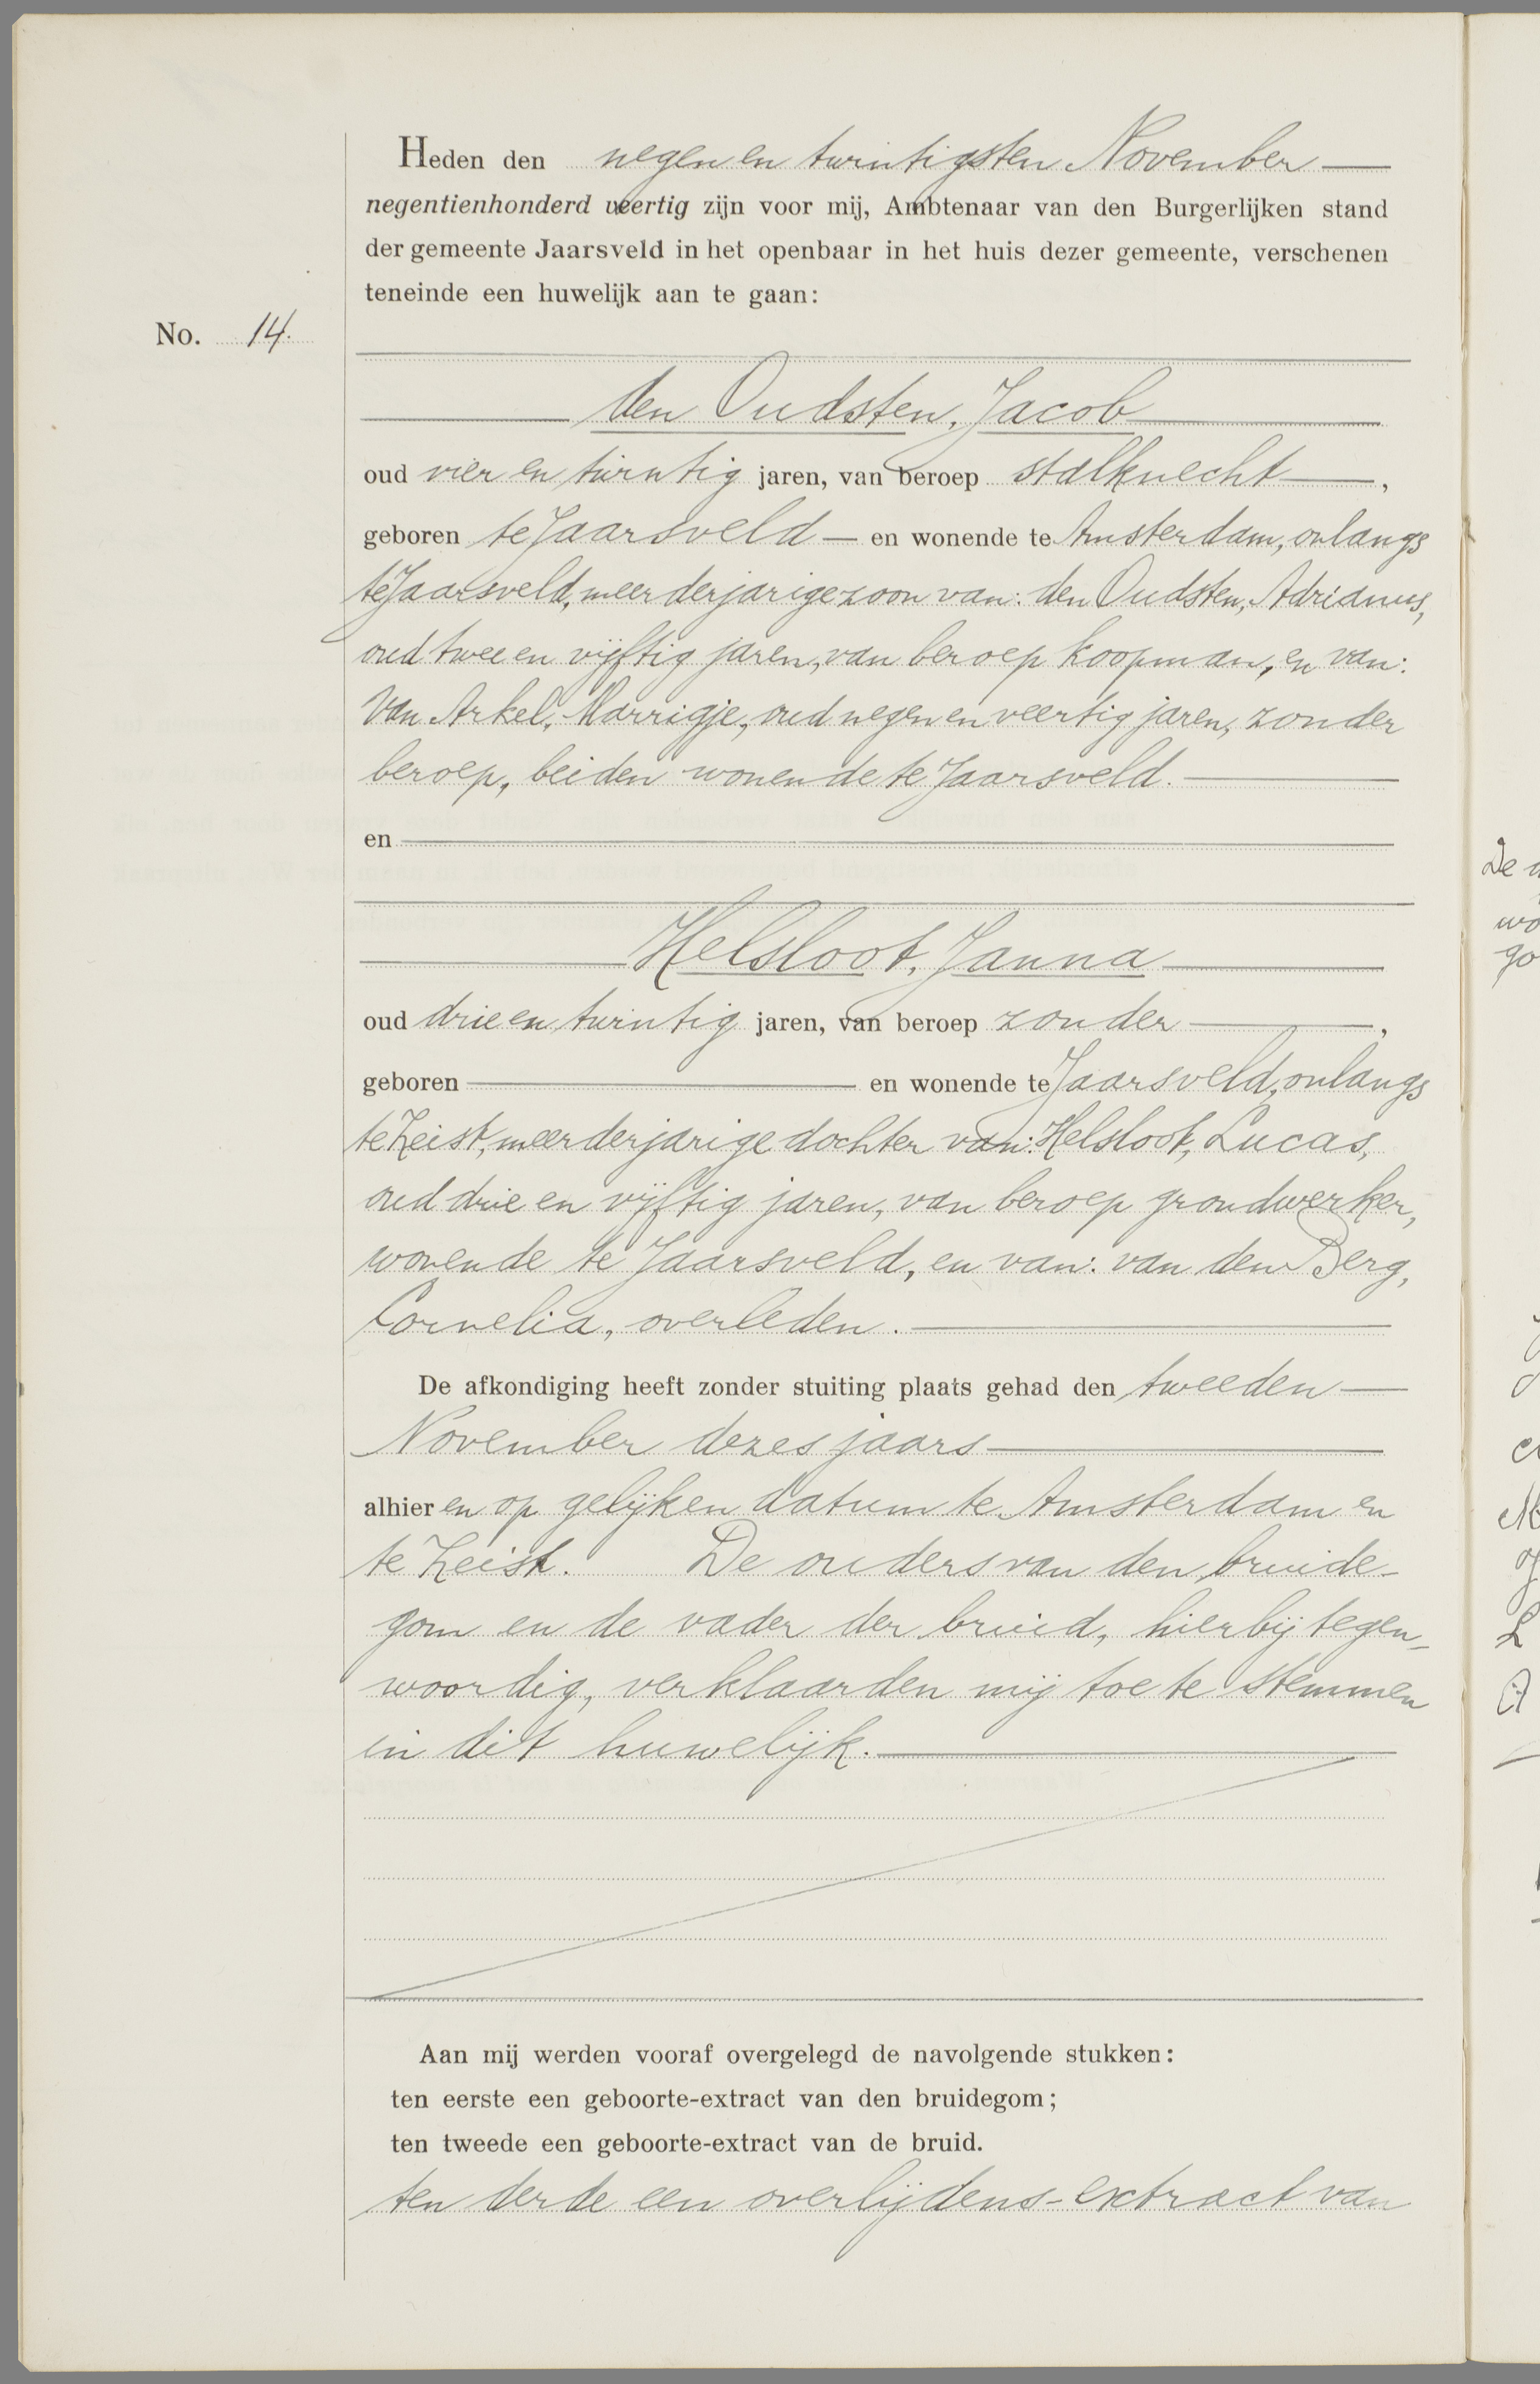 Heden den negen en twintigsten November —
negentienhonderd veertig zijn voor mij, Ambtenaar van den Burgerlijken stand
der gemeente Jaarsveld in het openbaar in het huis dezer gemeente, verschenen
teneinde een huwelijk aan te gaan:
No. 14.
den Oudsten, Jacob
oud vier en twintig jaren, van beroep stalknecht —,
geboren te Jaarsveld — en wonende te Amsterdam, onlangs
te Jaarsveld, meerderjarige zoon van: den Oudsten, Adrianus,
oud twee en vijftig jaren, van beroep koopman, en van:
Van Arkel, Marrigje, oud negen en veertig jaren, zonder
beroep, beiden wonende te Jaarsveld. —
en —
Helsloot, Janna
oud drie en twintig jaren, van beroep zonder —,
geboren — en wonende te Jaarsveld, onlangs
te Zeist, meerderjarige dochter van: Helsloot, Lucas,
oud drie en vijftig jaren, van beroep grondwerker,
wonende te Jaarsveld, en van: van den Berg,
Cornelia, overleden. —
De afkondiging heeft zonder stuiting plaats gehad den tweeden —
November dezes jaars —
alhier en op gelijken datum te Amsterdam en
te Zeist. De ouders van den bruide-
gom en de vader der bruid, hierbij tegen-
woordig, verklaarden mij toe te stemmen
in dit huwelijk. —
Aan mij werden vooraf overgelegd de navolgende stukken:
ten eerste een geboorte-extract van den bruidegom;
ten tweede een geboorte-extract van de bruid.
ten derde een overlijdens-extract van